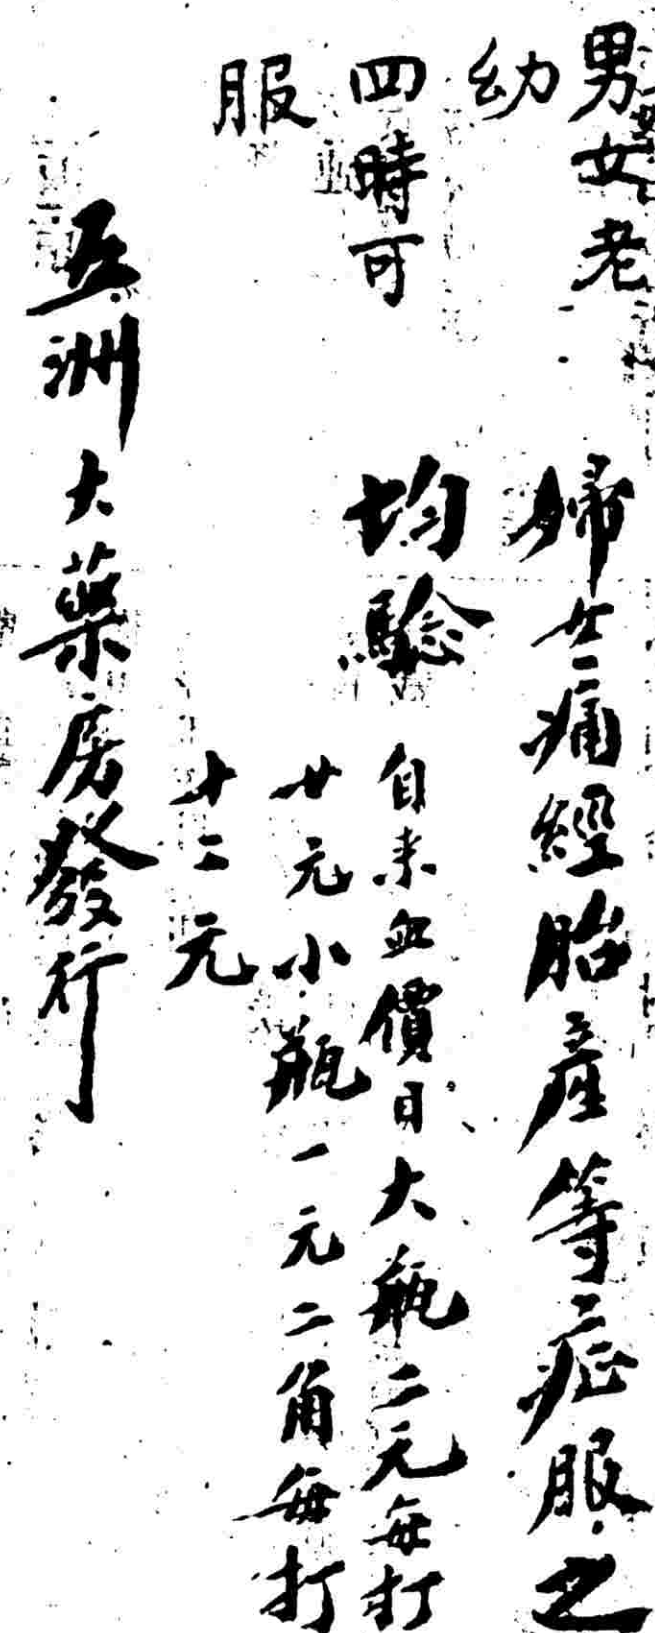 男女老
幼
四時可
服
婦女痛經胎產等症服之
均騐
自来血價目大瓶二元每打
廿元小瓶一元二角每打
十二元
亞洲大藥房發行